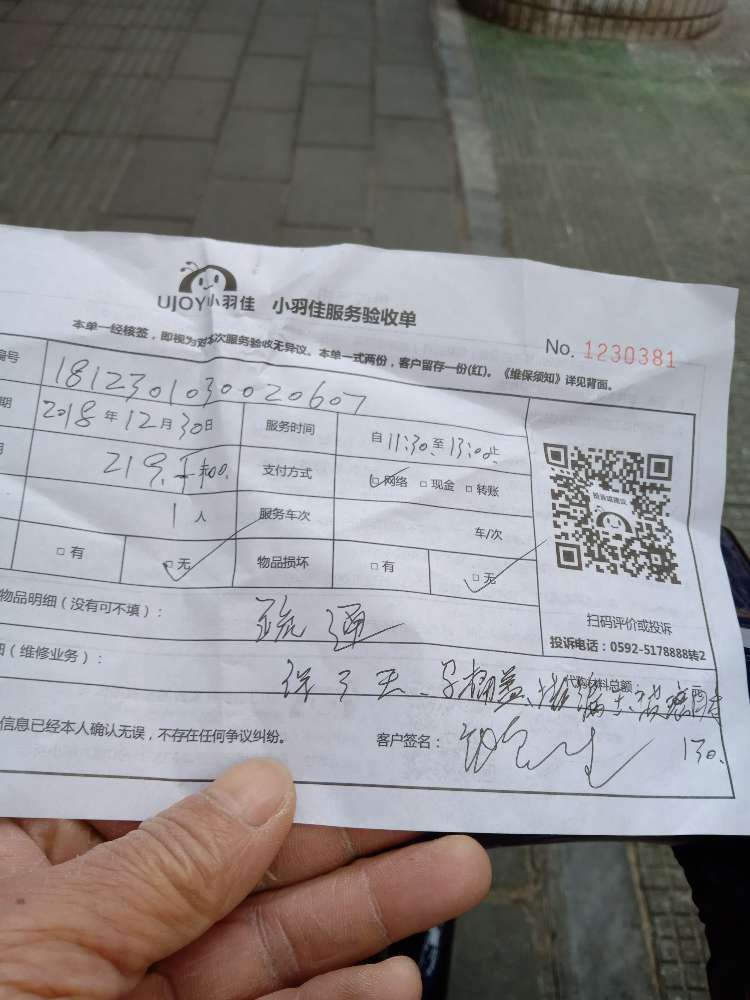 UJOY小羽佳 小羽佳服务验收单
No. 1230381
本单一经核签，即视为对本次服务验收无异议。本单一式两份，客户留存一份(红)。《维保须知》详见背面。
编号 1812301030020607
期 2018年12月30日 服务时间 自11:30至13:00止
219. 支付方式 □网络 □现金 □转账
1人 服务车次 车/次
□有 □无 物品损坏 □有 □无
扫码评价或投诉
投诉电话：0592-5178888转2
物品明细（没有可不填）： 疏通
（维修业务）： 代购材料总额：
信息已经本人确认无误，不存在任何争议纠纷。 客户签名： 130.